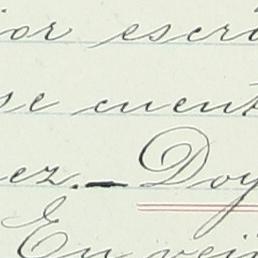 ior escri
se cuent
ez.— Doy
En vei